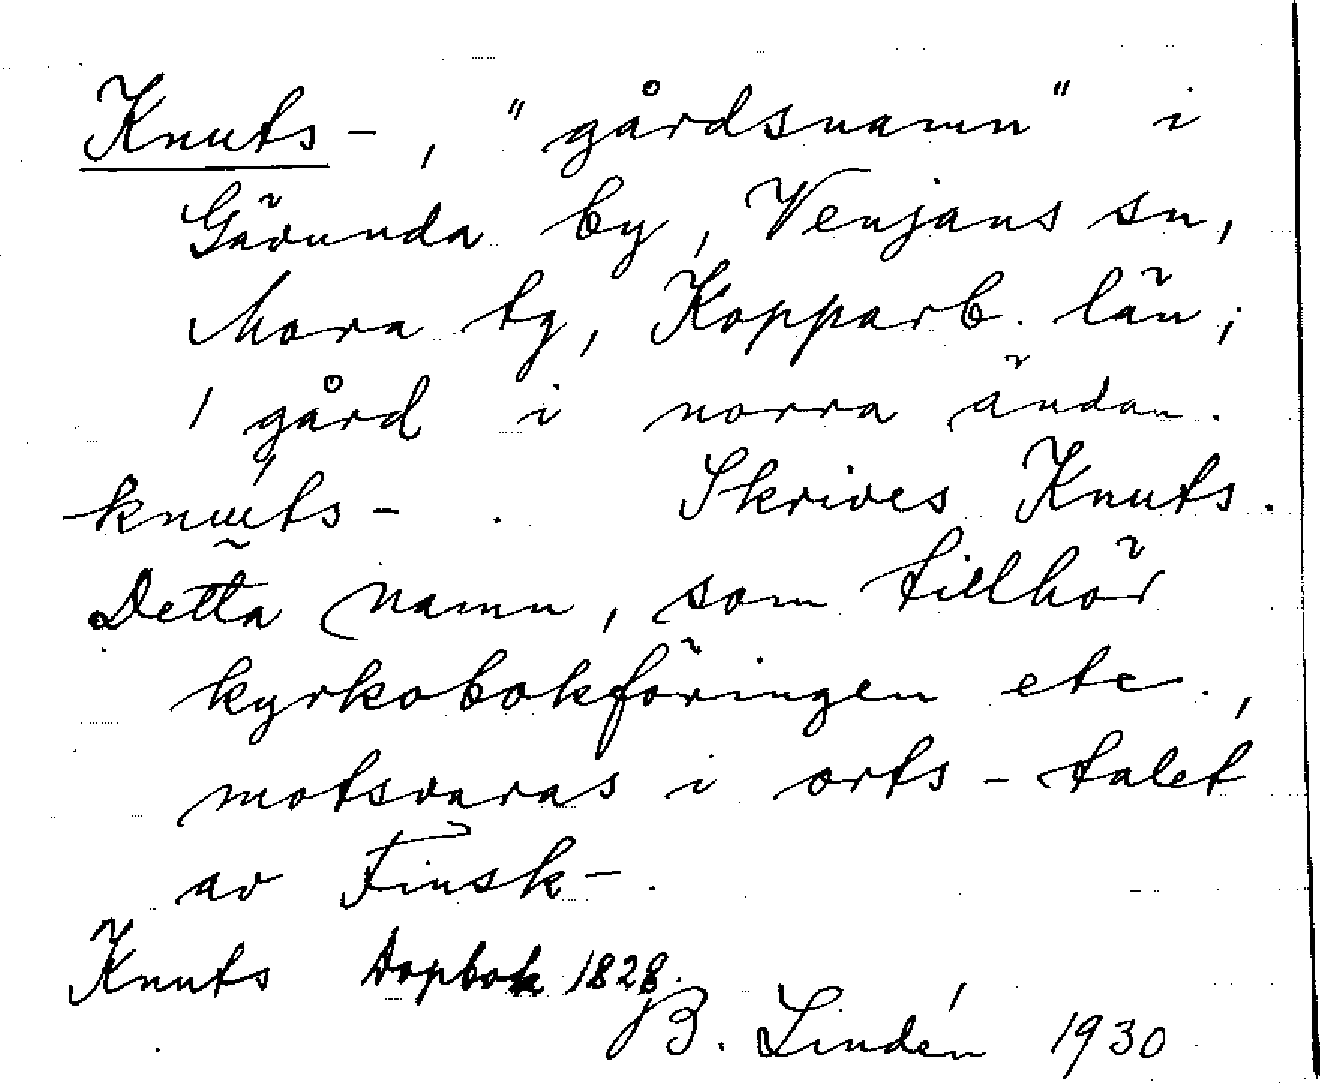 Knuts-, "gårdsnamn" i
Gävunda by, Venjans sn,
Mora tg, Kopparb. län;
1 gård i norra ändan.
Skrives Knuts.
Detta namn, som tillhör
kyrkobokföringen etc.,
motsvaras i orts-talet
av Finsk-.
Knuts Dopbok 1828.
B. Lindén 1930